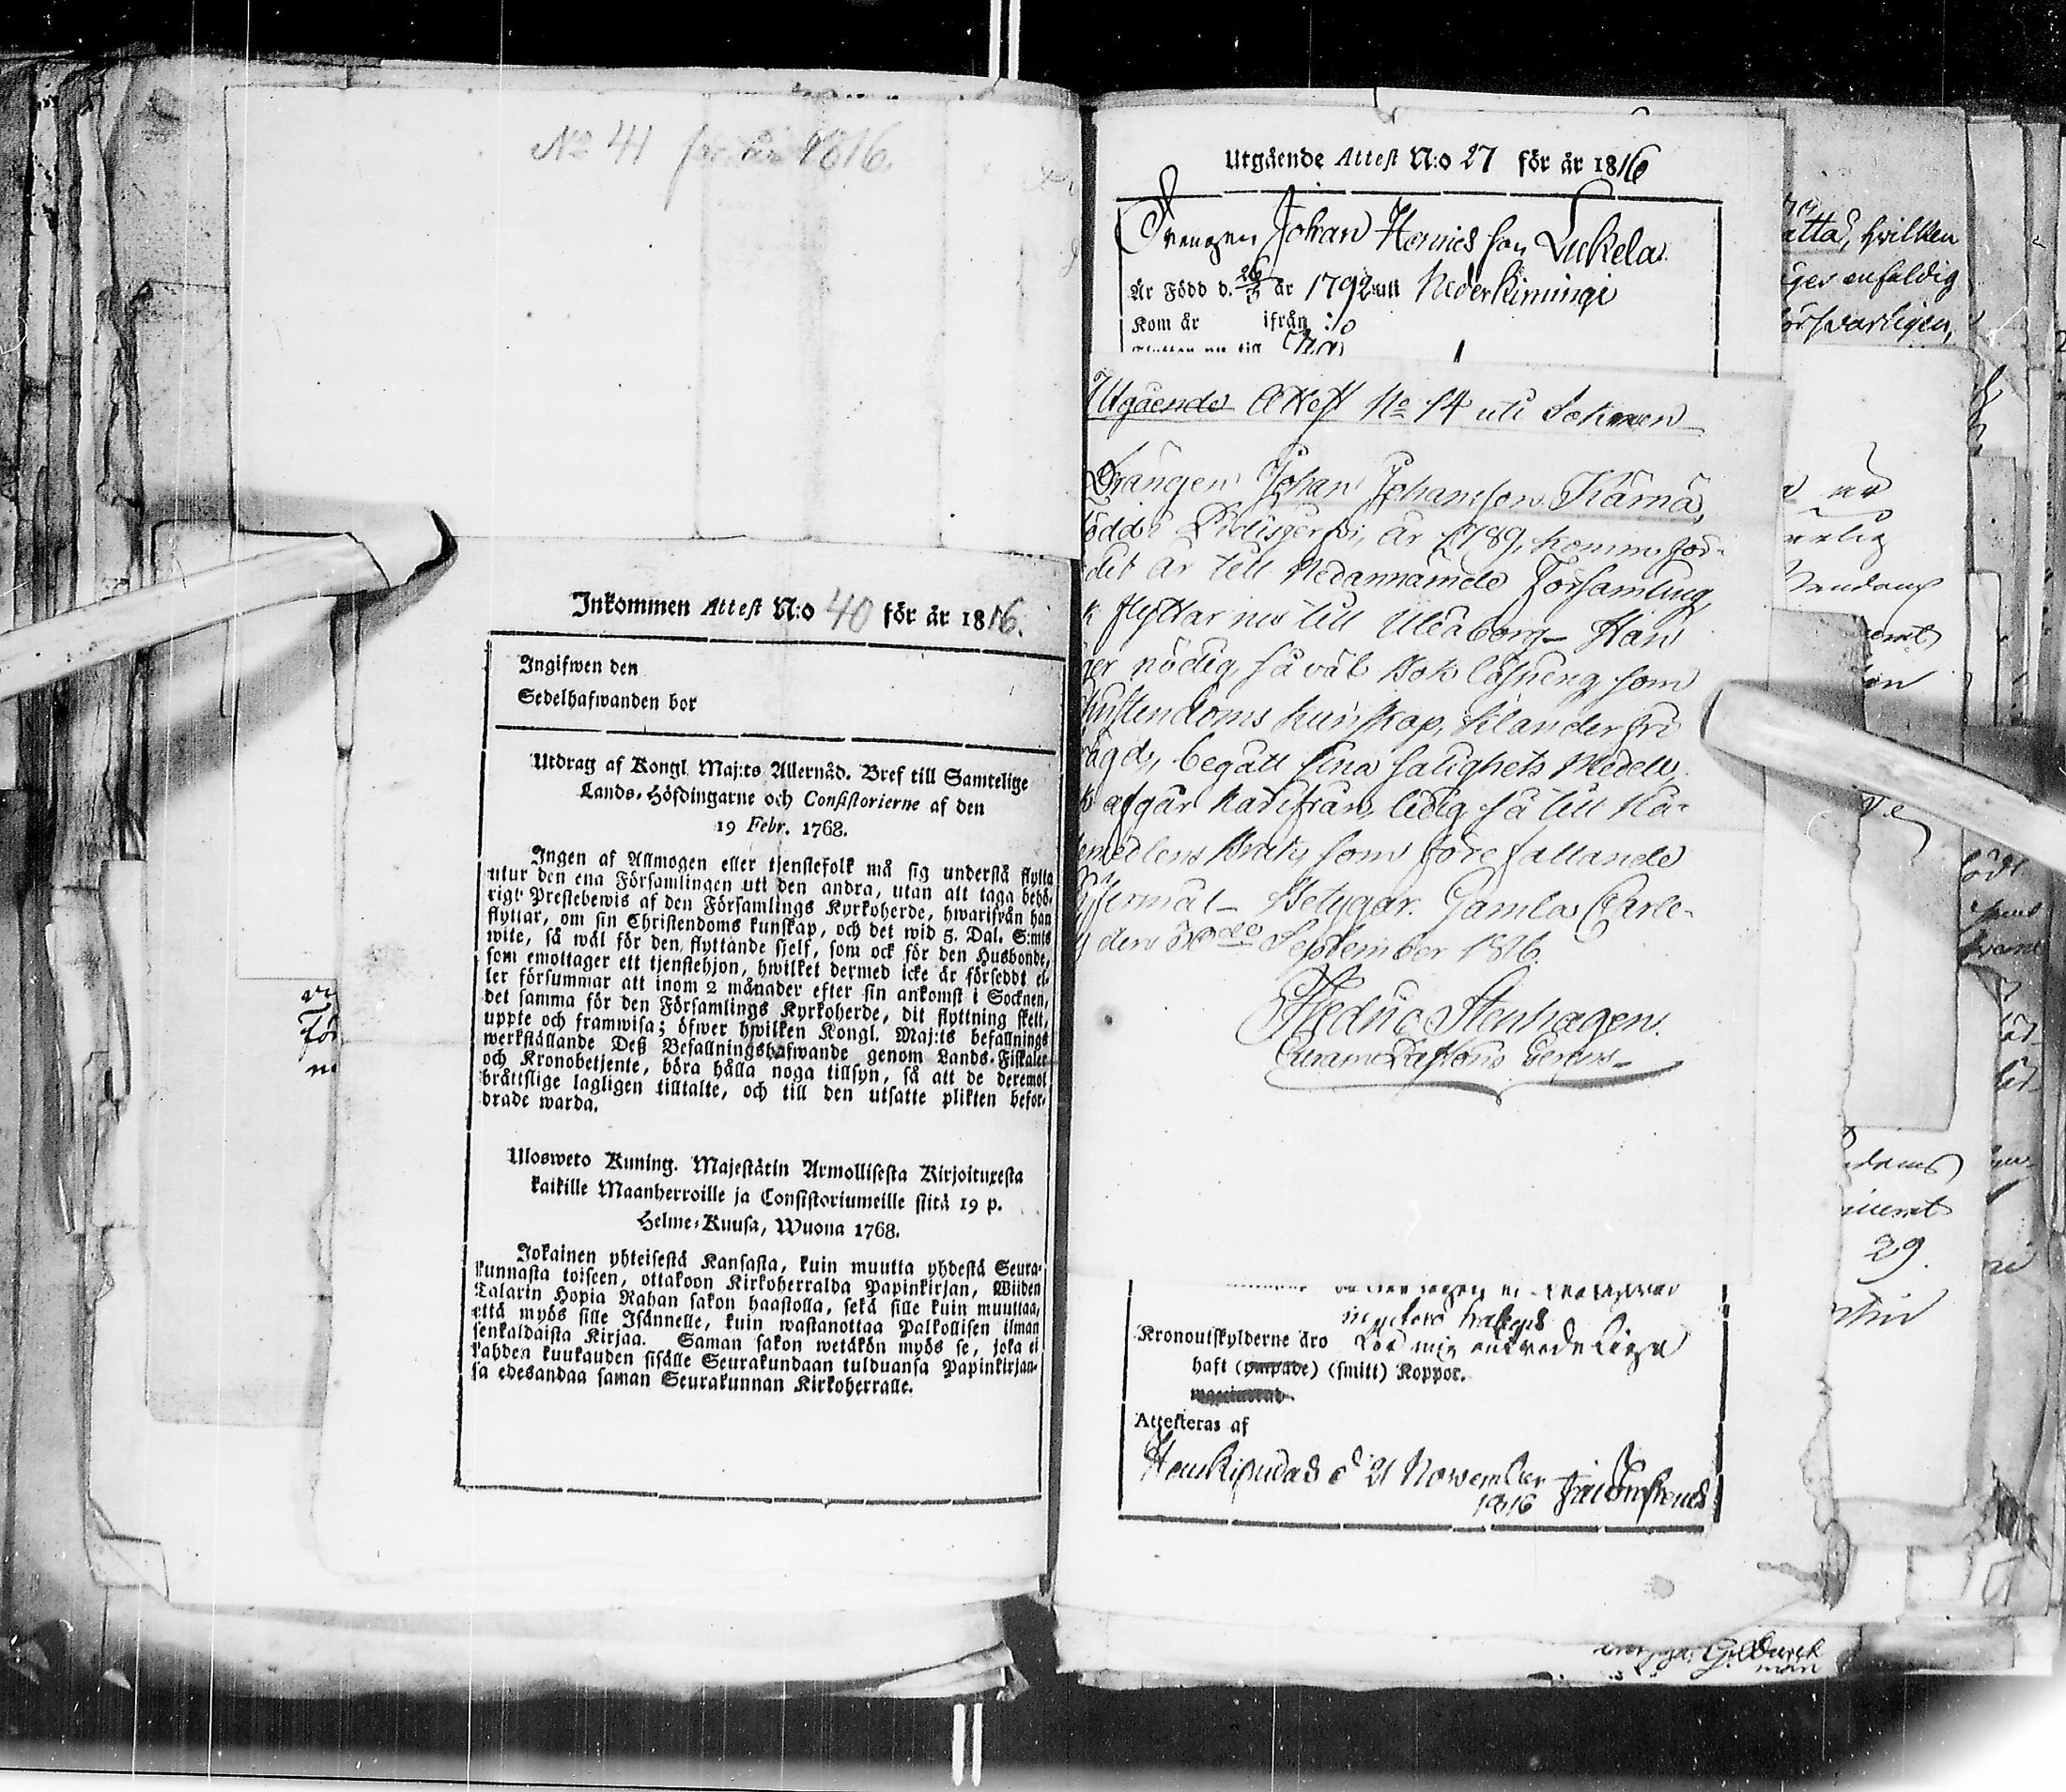 No 41 för år 1816.
Inkommen Attest N:o 40 för år 1816.
Ingifwen den
Sedelhafwanden bor
Utdrag af Kongl. Maj:ts Allernåd. Bref till Samtelige
Lands-Höfdingarne och Consistorierne af den
19 Febr. 1768.
Ingen af Allmogen eller tjenstefolk må sig understå flytta
utur den ena Församlingen uti den andra, utan att taga behö-
rigt Prestebewis af den Församlings Kyrkoherde, hwarifrån han
flyttar, om sin Christendoms kunskap, och det wid 5. Dal. S:mts
wite, så wäl för den flyttande sjelf, som ock för den Husbonde,
som emottager ett tjenstehjon, hwilket dermed icke är försedt el-
ler försummar att inom 2 månader efter sin ankomst i Socknen,
det samma för den Församlings Kyrkoherde, dit flyttning skett,
uppte och framwisa; öfwer hwilken Kongl. Maj:ts befallnings
werkställande Deß Befallningshafwande genom Lands-Fiskaler
och Kronobetjente, böra hålla noga tillsyn, så att de deremot
bråttslige lagligen tilltalte, och till den utsatte plikten befor-
drade warda.
Ulosweto Kuning. Majestätin Armollisesta Kirjoituxesta
kaikille Maanherroille ja Consistoriumeille siitä 19 p.
Helme-Kuusa, Wuona 1768.
Jokainen yhteisestä Kansasta, kuin muutta yhdestä Seura-
kunnasta toiseen, ottakoon Kirkoherralda Papinkirjan, Wiiden
Talarin Hopia Rahan sakon haastolla, sekä sille kuin muuttaa,
että myös sille Isännelle, kuin wastanottaa Palkollisen ilman
senkaldaista Kirjaa. Saman sakon wetäkön myös se, joka ei
kahden kuukauden sisälle Seurakundaan tulduansa Papinkirjan-
sa edesandaa saman Seurakunnan Kirkoherralle.
Utgående Attest N:o 27 för år 1816
Drengen Johan Hennics son Luckela
Är Född d. 26/3 år 1792 uti Nederkiminge
Kom år ifrån :o
Utgående Attest No 14 uti Socknen
Drängen Johan Johansson Kärnä,
födde i Pidisjerfvi, år 1789, komm för-
det år till Nedannämde Församling,
k flyttar nu till Uleåborg – Han
ger nödig så väl Bok läsning som
hristendoms kunskap, klanderfri
rägd, begått sina salighets Medel,
k afgår härifrån ledig så till Nå-
emedlens bruk, som förefallande
termål – Betygar. Gamla Carle-
den September 1816.
Fredric Stenhagen.
Kronoutskylderne äro
haft (ympade) (smitt) Koppor.
Attesteras af
d 21 November
1816
atta, hvilken
enfaldig
försvarligen,
29.